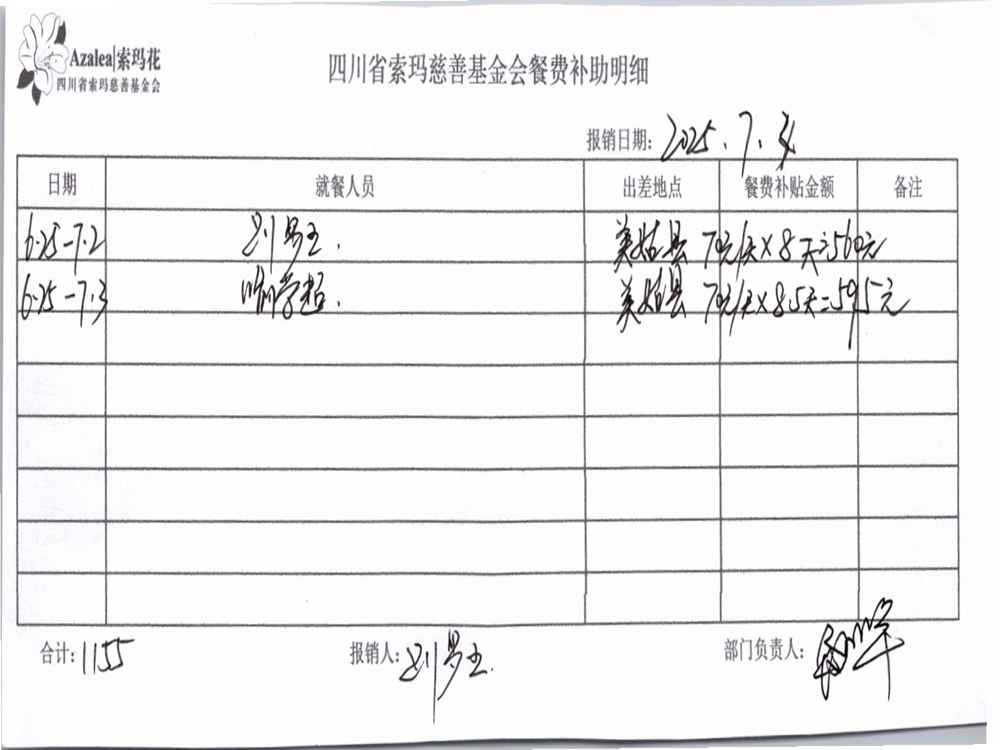 Azalea|索玛花
四川省索玛慈善基金会
四川省索玛慈善基金会餐费补助明细
报销日期: 2025.7.
日期 就餐人员 出差地点 餐费补贴金额 备注
6.25-7.2 美姑县 70元/天×8天=560元
6.25-7.3 美姑县 70元/天×8.5天=595元
合计: 1155 报销人: 部门负责人: